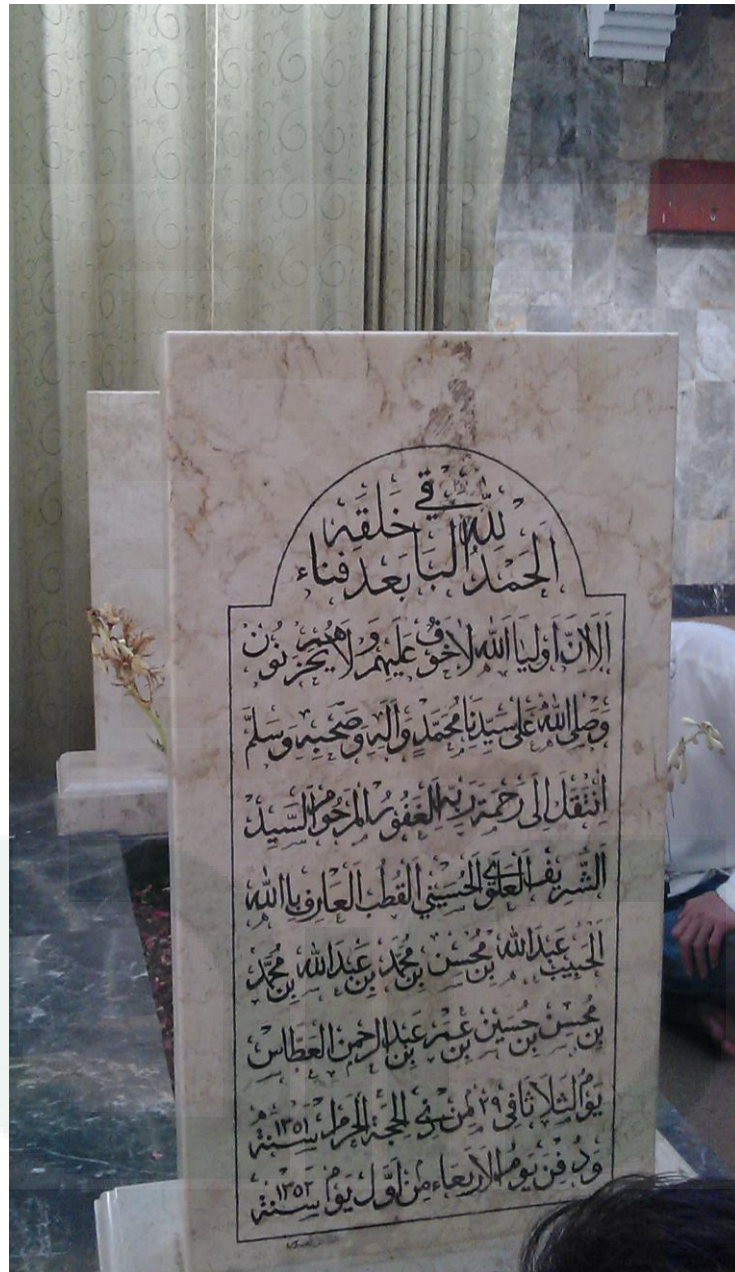 الحمد لله الباقي بعد فناء خلقه
اَلَا اِنَّ اَوْلِيَا اَللهِ لَا خَوْفٌ عَلَيْهِمْ وَلَا هُمْ يَحْزَنُوْنَ
وَصَلَّى اللهُ عَلَى سَيِّدِنَا مُحَمَّدٍ وَآلِهِ وَصَحْبِهِ وَسَلَّمَ
اِنْتَقَلَ اِلَى رَحْمَةِ رَبِّهِ الْغَفُوْرُ الْمَرْحُوْمُ السَّيِّدُ
الشَّرِيْفُ الْعَلَوِي الْحُسَيْنِي الْقُطْبُ الْعَارِفُ بِاالله
الْحَبِيْبُ عَبْدَاللهْ بِنْ مُحْسِنْ بِنْ مُحَمَّدْ بِنْ عَبْدَاللهْ بِنْ مُحَمَّدْ
بِنْ مُحْسِنْ بِنْ حُسَيْنْ بِنْ عُمَرْ بِنْ عَبْدِالرَّحْمنْ الْعَطَّاسْ
يَوْمُ الثُّلَاثَا فِى ٢٩ مِنْ ذِى الْحِجَّةِ الْحَرَامْ سَنَةْ ١٣٥١ ه
وَدُفِنَ يَوْمُ الْاَرْبِعَاء مِنْ اَوَّلْ يَوْمْ سَنَةْ ١٣٥٢